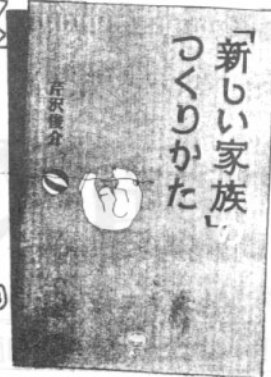 「新しい家族」
つくりかた
芹沢俊介